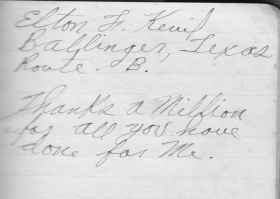 Elton F.
Ballinger, Texas
Route. B.
Thanks a Million
for all you have
done for Me.